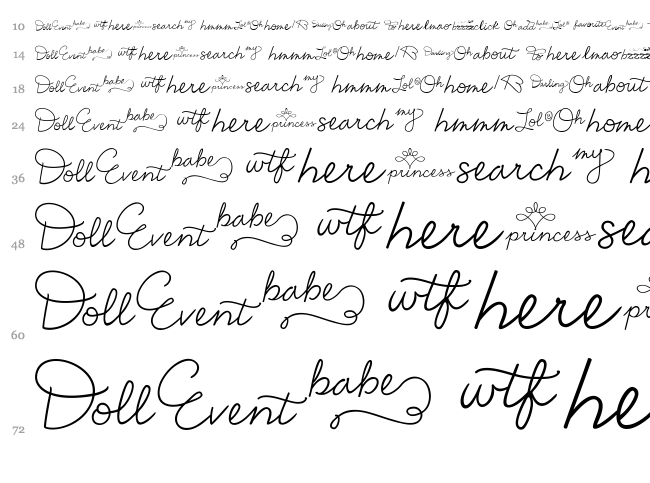 10 Doll Event babe wtf here princess search my hmmm Lol@Oh home/ Darling Oh about To here lmao bzzzz click Oh add babe Lol@ favorite Event babe
14 Doll Event babe wtf here princess search my hmmm Lol@Oh home/ Darling Oh about To here lmao bzzzz
18 Doll Event babe wtf here princess search my hmmm Lol@Oh home/ Darling Oh about
24 Doll Event babe wtf here princess search my hmmm Lol@Oh home
36 Doll Event babe wtf here princess search my h
48 Doll Event babe wtf here princess sea
60 Doll Event babe wtf here pr
72 Doll Event babe wtf he